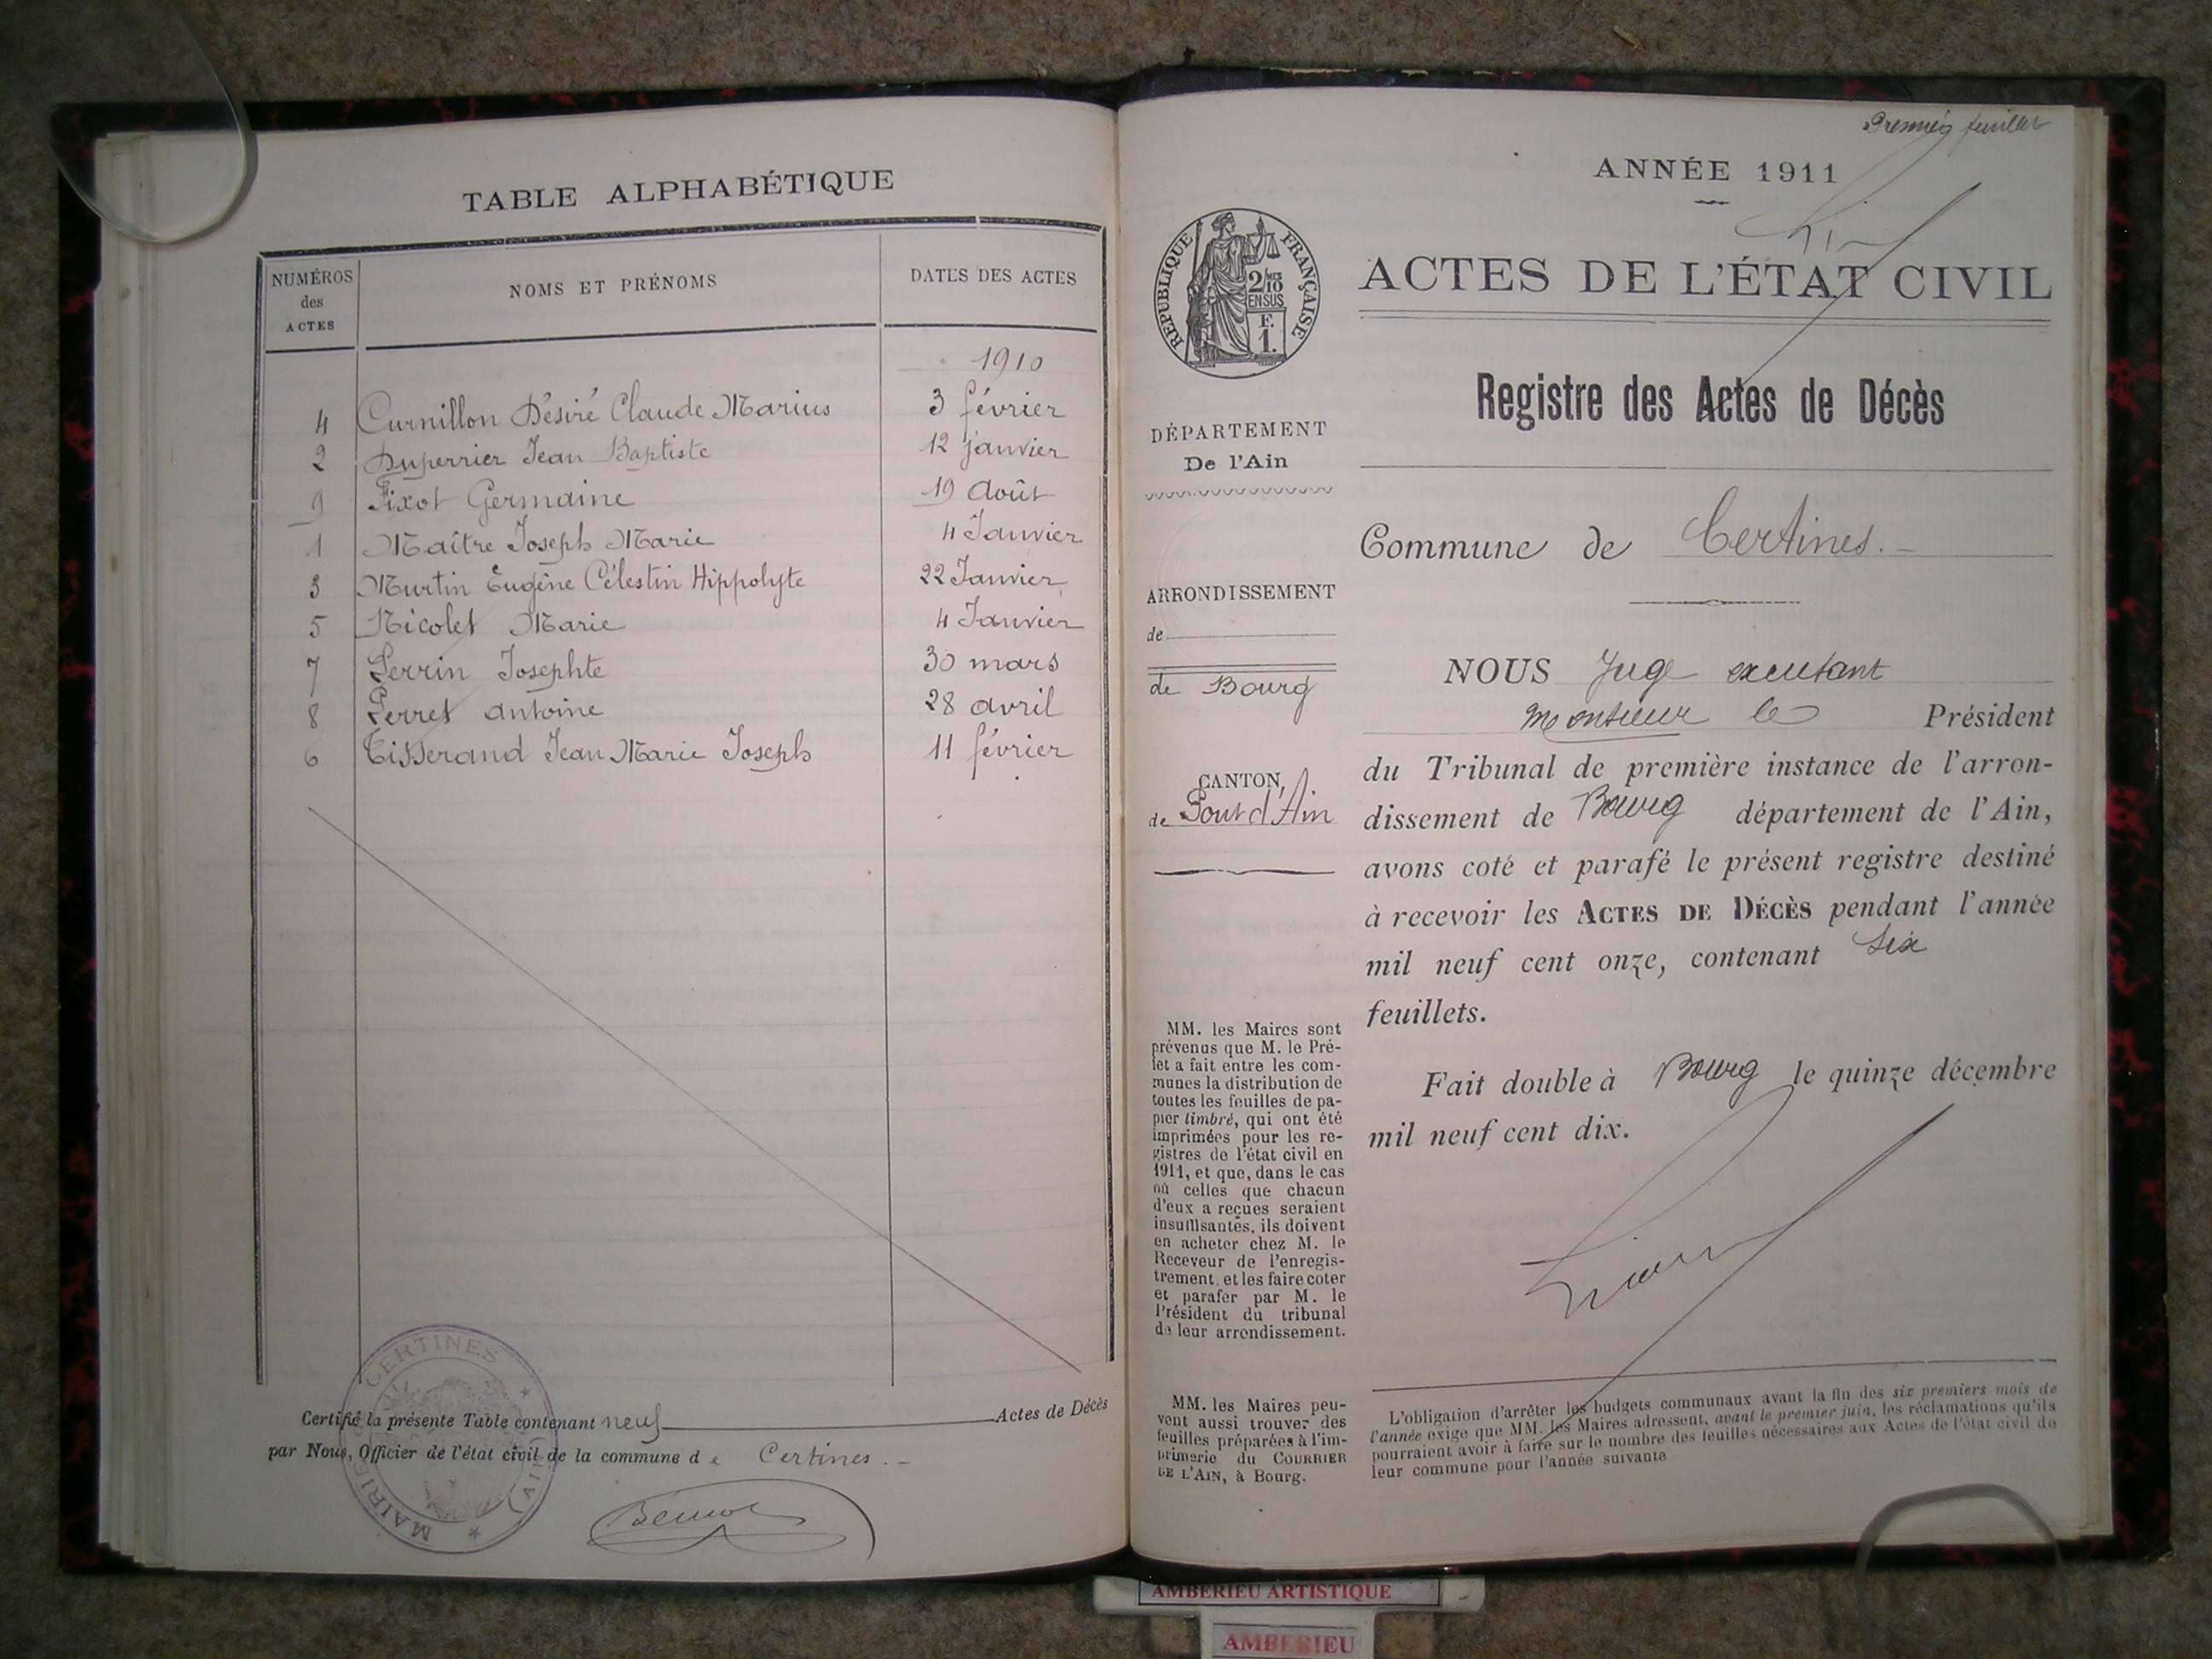 TABLE ALPHABÉTIQUE
NUMÉROS des ACTES NOMS ET PRÉNOMS DATES DES ACTES
1910
4 Curnillon Désiré Claude Marius 3 février
2 Duperrier Jean Baptiste 12 janvier
9 Fixot Germaine 19 Août
1 Maître Joseph Marie 4 Janvier
3 Murtin Eugène Célestin Hippolyte 22 Janvier
5 Nicolet Marie 4 Janvier
7 Perrin Josephte 30 mars
8 Perret Antoine 28 avril
6 Tisserand Jean Marie Joseph 11 février
Certifié la présente Table contenant neuf Actes de Décès
par Nous, Officier de l'état civil de la commune de Certines.
MAIRIE CERTINES (AIN)
Premier feuillet
ANNÉE 1911
RÉPUBLIQUE FRANÇAISE
2/10 MES
EN SUS
F.
1.
ACTES DE L'ÉTAT CIVIL
Registre des Actes de Décès
DÉPARTEMENT
De l'Ain
ARRONDISSEMENT
de
de Bourg
CANTON
de Pont d'Ain
Commune de Certines.
NOUS Juge
Monsieur le Président
du Tribunal de première instance de l'arron-
dissement de Bourg département de l'Ain,
avons coté et parafé le présent registre destiné
à recevoir les ACTES DE DÉCÈS pendant l'année
mil neuf cent onze, contenant six
feuillets.
Fait double à Bourg le quinze décembre
mil neuf cent dix.
MM. les Maires sont
prévenus que M. le Pré-
fet a fait entre les com-
munes la distribution de
toutes les feuilles de pa-
pier timbré, qui ont été
imprimées pour les re-
gistres de l'état civil en
1911, et que, dans le cas
où celles que chacun
d'eux a reçues seraient
insuffisantes, ils doivent
en acheter chez M. le
Receveur de l'enregis-
trement, et les faire coter
et parafer par M. le
Président du tribunal
de leur arrondissement.
MM. les Maires peu-
vent aussi trouver des
feuilles préparées à l'im-
primerie du COURRIER
DE L'AIN, à Bourg.
L'obligation d'arrêter les budgets communaux avant la fin des six premiers mois de
l'année exige que MM. les Maires adressent, avant le premier juin, les réclamations qu'ils
pourraient avoir à faire sur le nombre des feuilles nécessaires aux Actes de l'état civil de
leur commune pour l'année suivante
AMBERIEU ARTISTIQUE
AMBERIEU